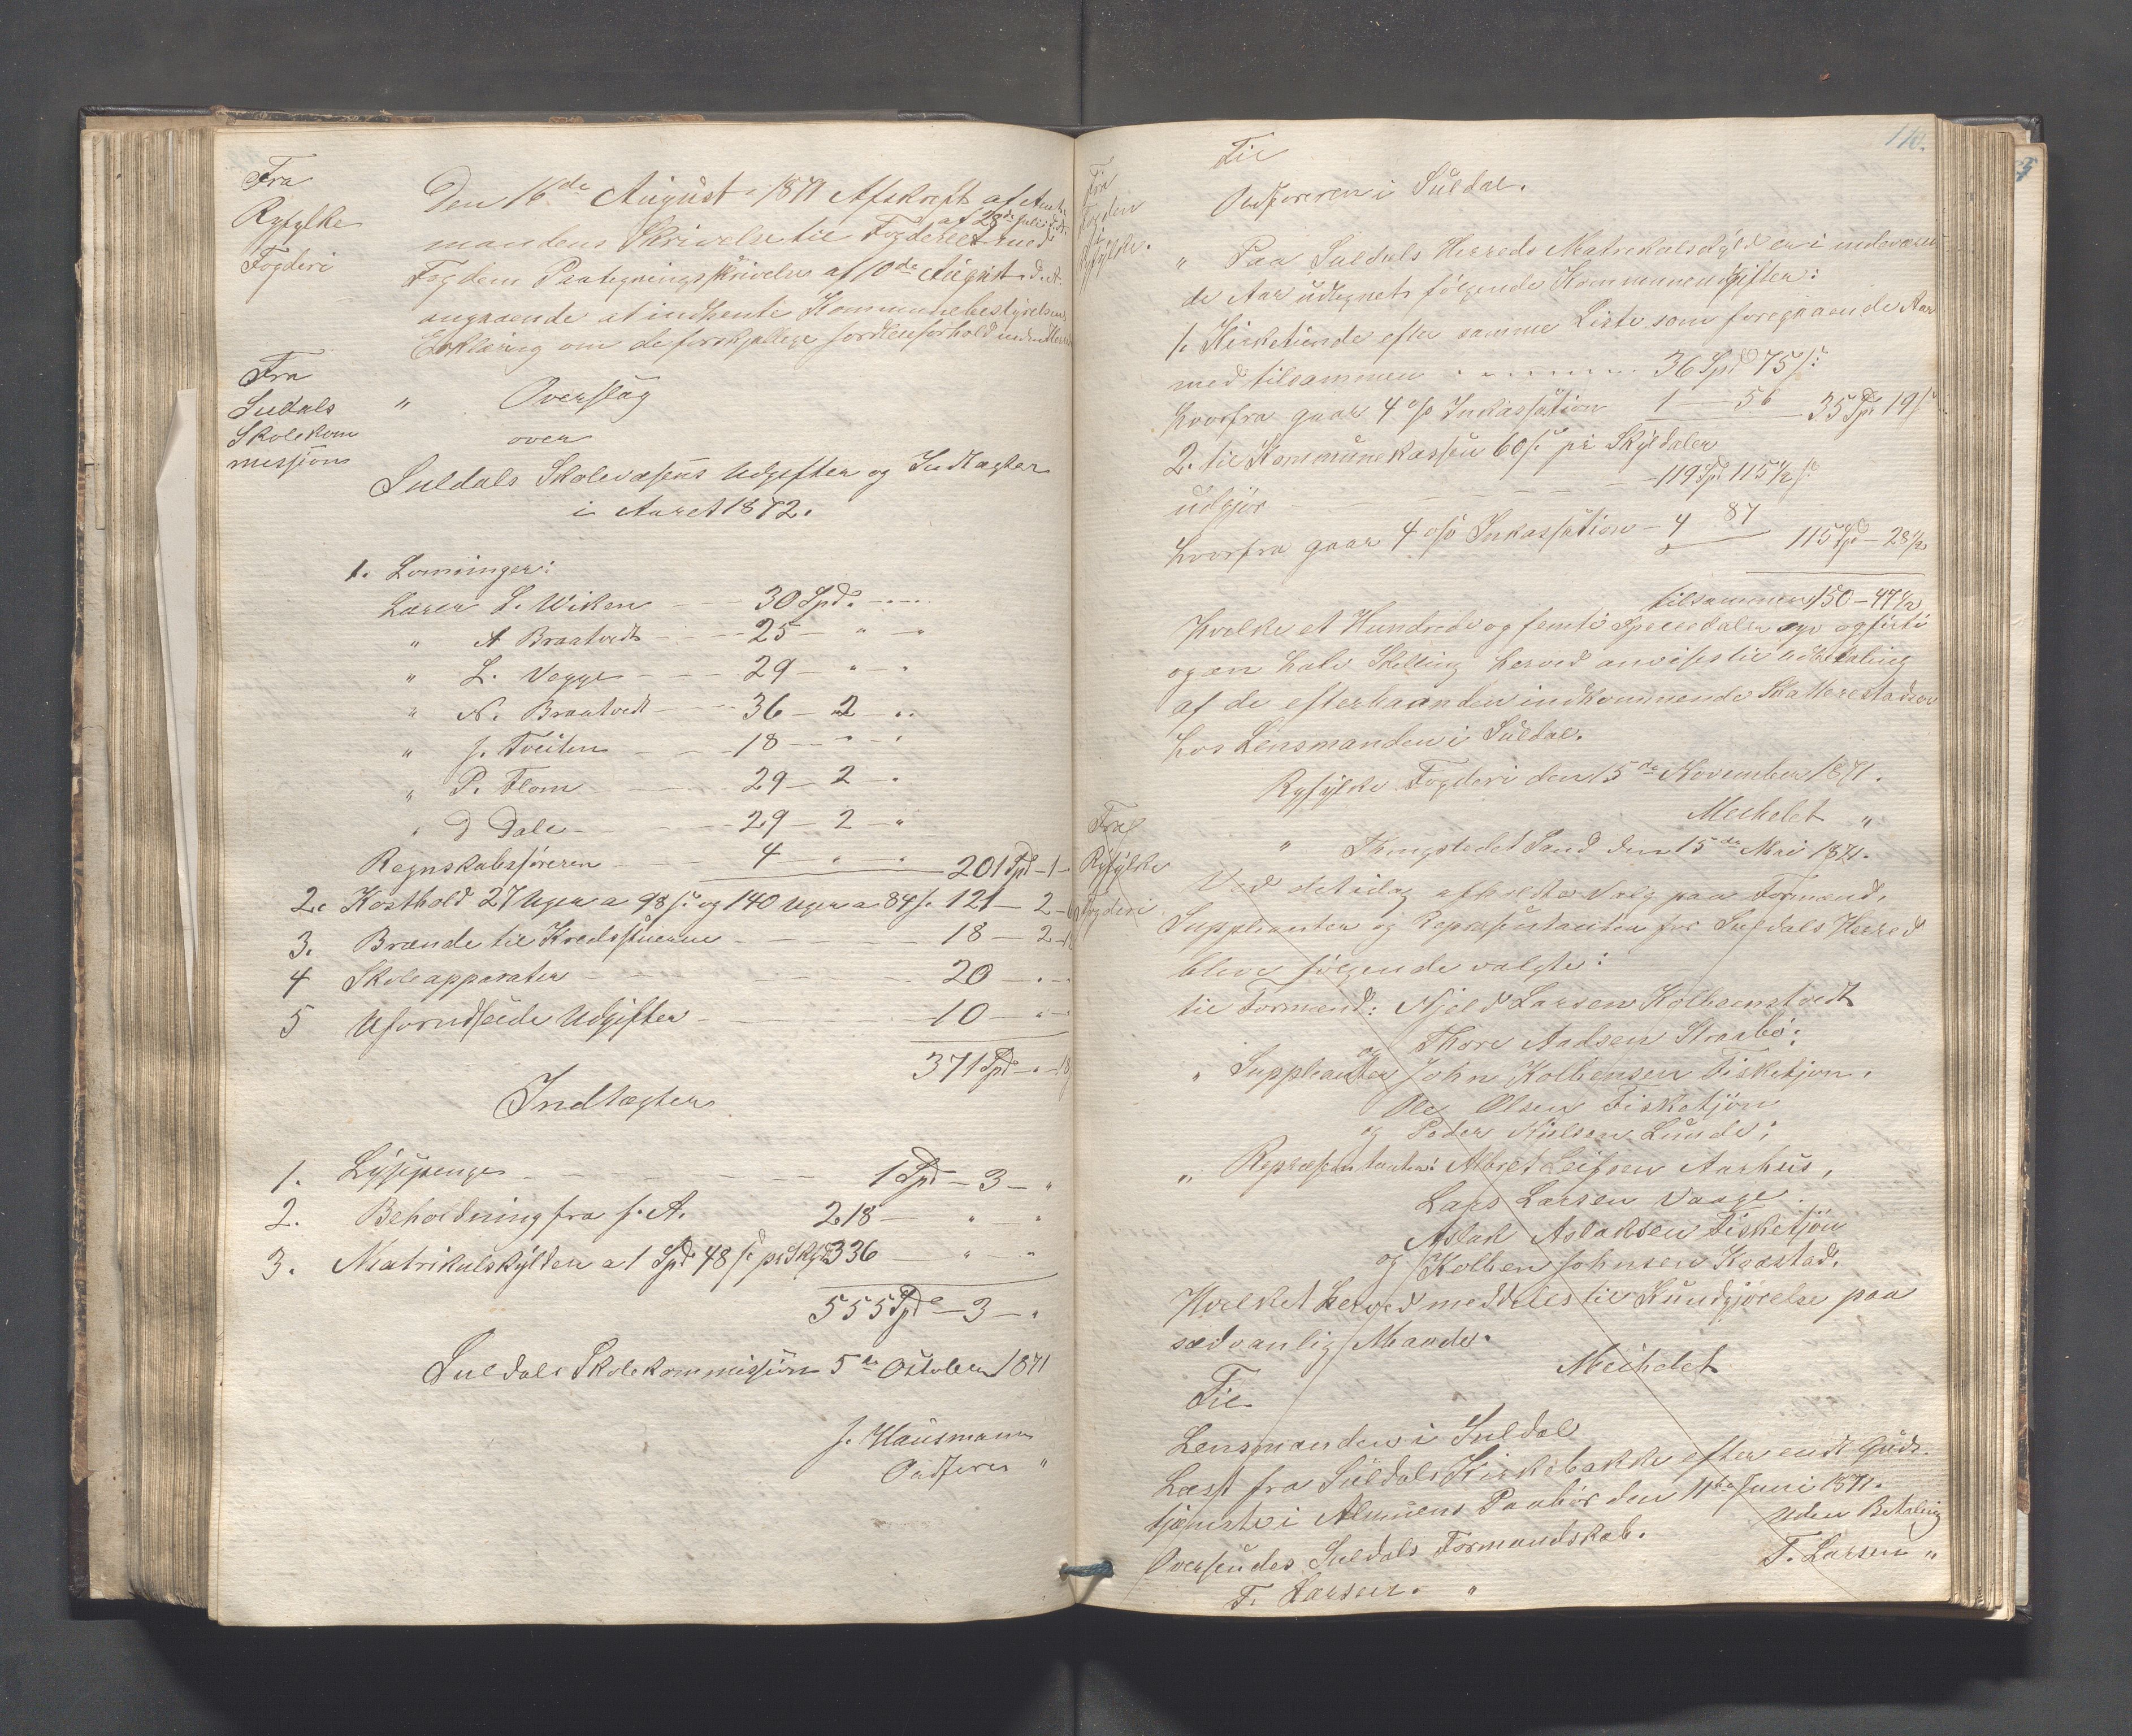 Fra
Ryfylke
Fogderi
Den 16de August 1871 Afskrift af Amt-
mandens Skrivelse til Fogderiet af 28de Juli med
Fogdens Paategningsskrivelse af 10de August d. A.
angaaende at indhente Kommunebestyrelsens
Erklæring om de forskjellige
Fra
Suldals
Skolekom
missjon
" Overslag
over
Suldals Skolevæsens Udgifter og Indtægter
i Aaret 1872.
1. Lønninger:
Lærer L. Wiken 30 Spd.
" A Braatvedt 25 — " — "
" L. Vegge 29 — " — "
" N. Braatvedt 36 — 2 — "
" J. Tveiten 18 — " — "
" P. Flom 29 — 2 — "
" D Dale 29 — 2 — "
Regnskabsføreren 4 " " 201 Spd — 1 —
2. Kosthold 27 Uger a 98 s. og 140 Uger a 84 s. 121 — 2 — 60
3. Brænde til Kredsstuerne 18 — 2 —
4 Skoleapparater 20 — " — "
5 Uforudseede Udgifter 10 — " — "
371 Spd — " — 18
Indtægter
1. Lysepenge 1 Spd — 3 — "
2. Beholdning fra f. A. 218 — " — "
3. Matrikulskylden a 1 Spd 48 s. pr Skyld 336 — " — "
555 Spd — 3 — "
Suldals Skolekommissjon 5te October 1871
J. Hausmann
Ordfører "
110.
Fra
Fogden
i
Ryfylke.
Til
Ordføreren i Suldal.
" Paa Suldals Herreds Matrikulskyld er i indeværen
de Aar udlignet følgende Kommuneudgifter:
1. Kirketiende efter samme Liste som foregaaende Aar
med tilsammen 36 Spd 75 s:
hvorfra gaar 4 o/o Inkassation 1 — 56 — 35 Spd 19 s
2. til Kommunekassen 60 s. pr Skylddaler
udgjør — 119 Spd 115 1/2 s
hvorfra gaar 4 o/o Inkassation — 4 87 115 Spd — 28 1/2
tilsammen 150 — 47 1/2
hvilke et Hundrede og femti Speciedaler syv og firti
og en halv Skilling herved anvises til Udbetaling
af de efterhaanden indkommende Skatterestadser
hos Lensmanden i Suldal.
Ryfylke Fogderi den 15de November 1871.
Meihelet "
Fra
Ryfylke
Fogderi
" Thingstedet Sand den 15de Mai 1871.
Ved det idag afholdte Valg paa Formænd,
Suppleanter og Repræsentanter for Suldals Herred
bleve følgende valgte:
til Formænd: Njeld Larsen Kolbenstvedt
og Thore Aadsen Straabø;
" Suppleanter John Kolbensen Fisketjøn.
Ole Olsen Fisketjøn
og Peder Nielsen Lunde;
" Repræsentanter: Albret Leifsen Aarhus,
Lars Larsen Vaage.
Aslak Aslaksen Fisketjøn
og Kolben Johnsen Kvæstad.
Hvilket herved meddeles til Kundgjørelse paa
sædvanlig Maade.
Meihelet
Til
Lensmanden i Suldal
Læst fra Suldals Kirkebakke efter endt Guds-
tjeneste i Almuens Paahør den 11te Juni 1871.
Uden Betaling
T. Larsen "
Oversendes Suldals Formandskab.
T. Larsen. "